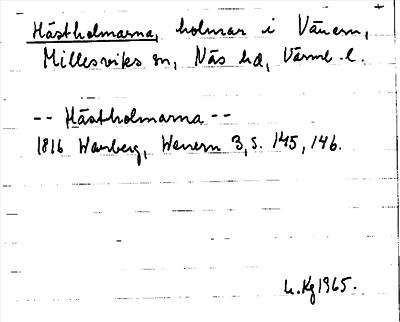 Hästholmarna, holmar i Vänern,
Millesviks sn, Näs hd, Värml. l.
-- Hästholmarna --
1816 Warberg, Wenern 3, s. 145, 146.
Kg 1965.